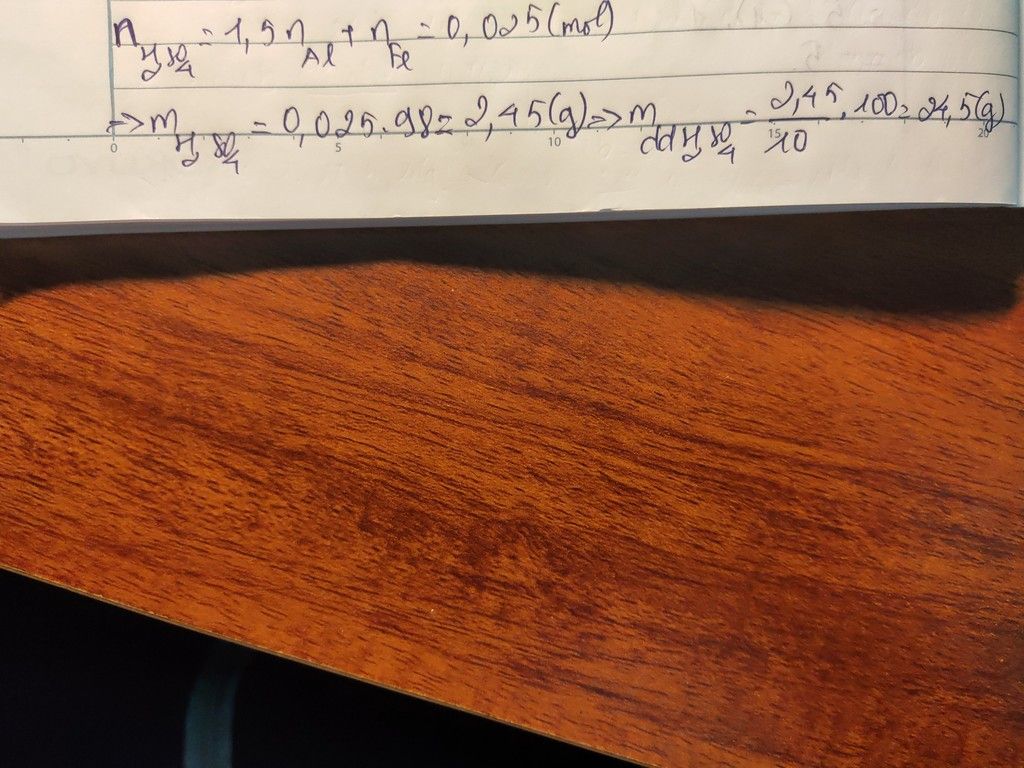 n H₂SO₄ = 1,5 n Al + n Fe = 0,025 (mol)
=> m H₂SO₄ = 0,025 . 98 = 2,45 (g) => m dd H₂SO₄ = 2,45/10 . 100 = 24,5 (g)
0 5 10 15 20